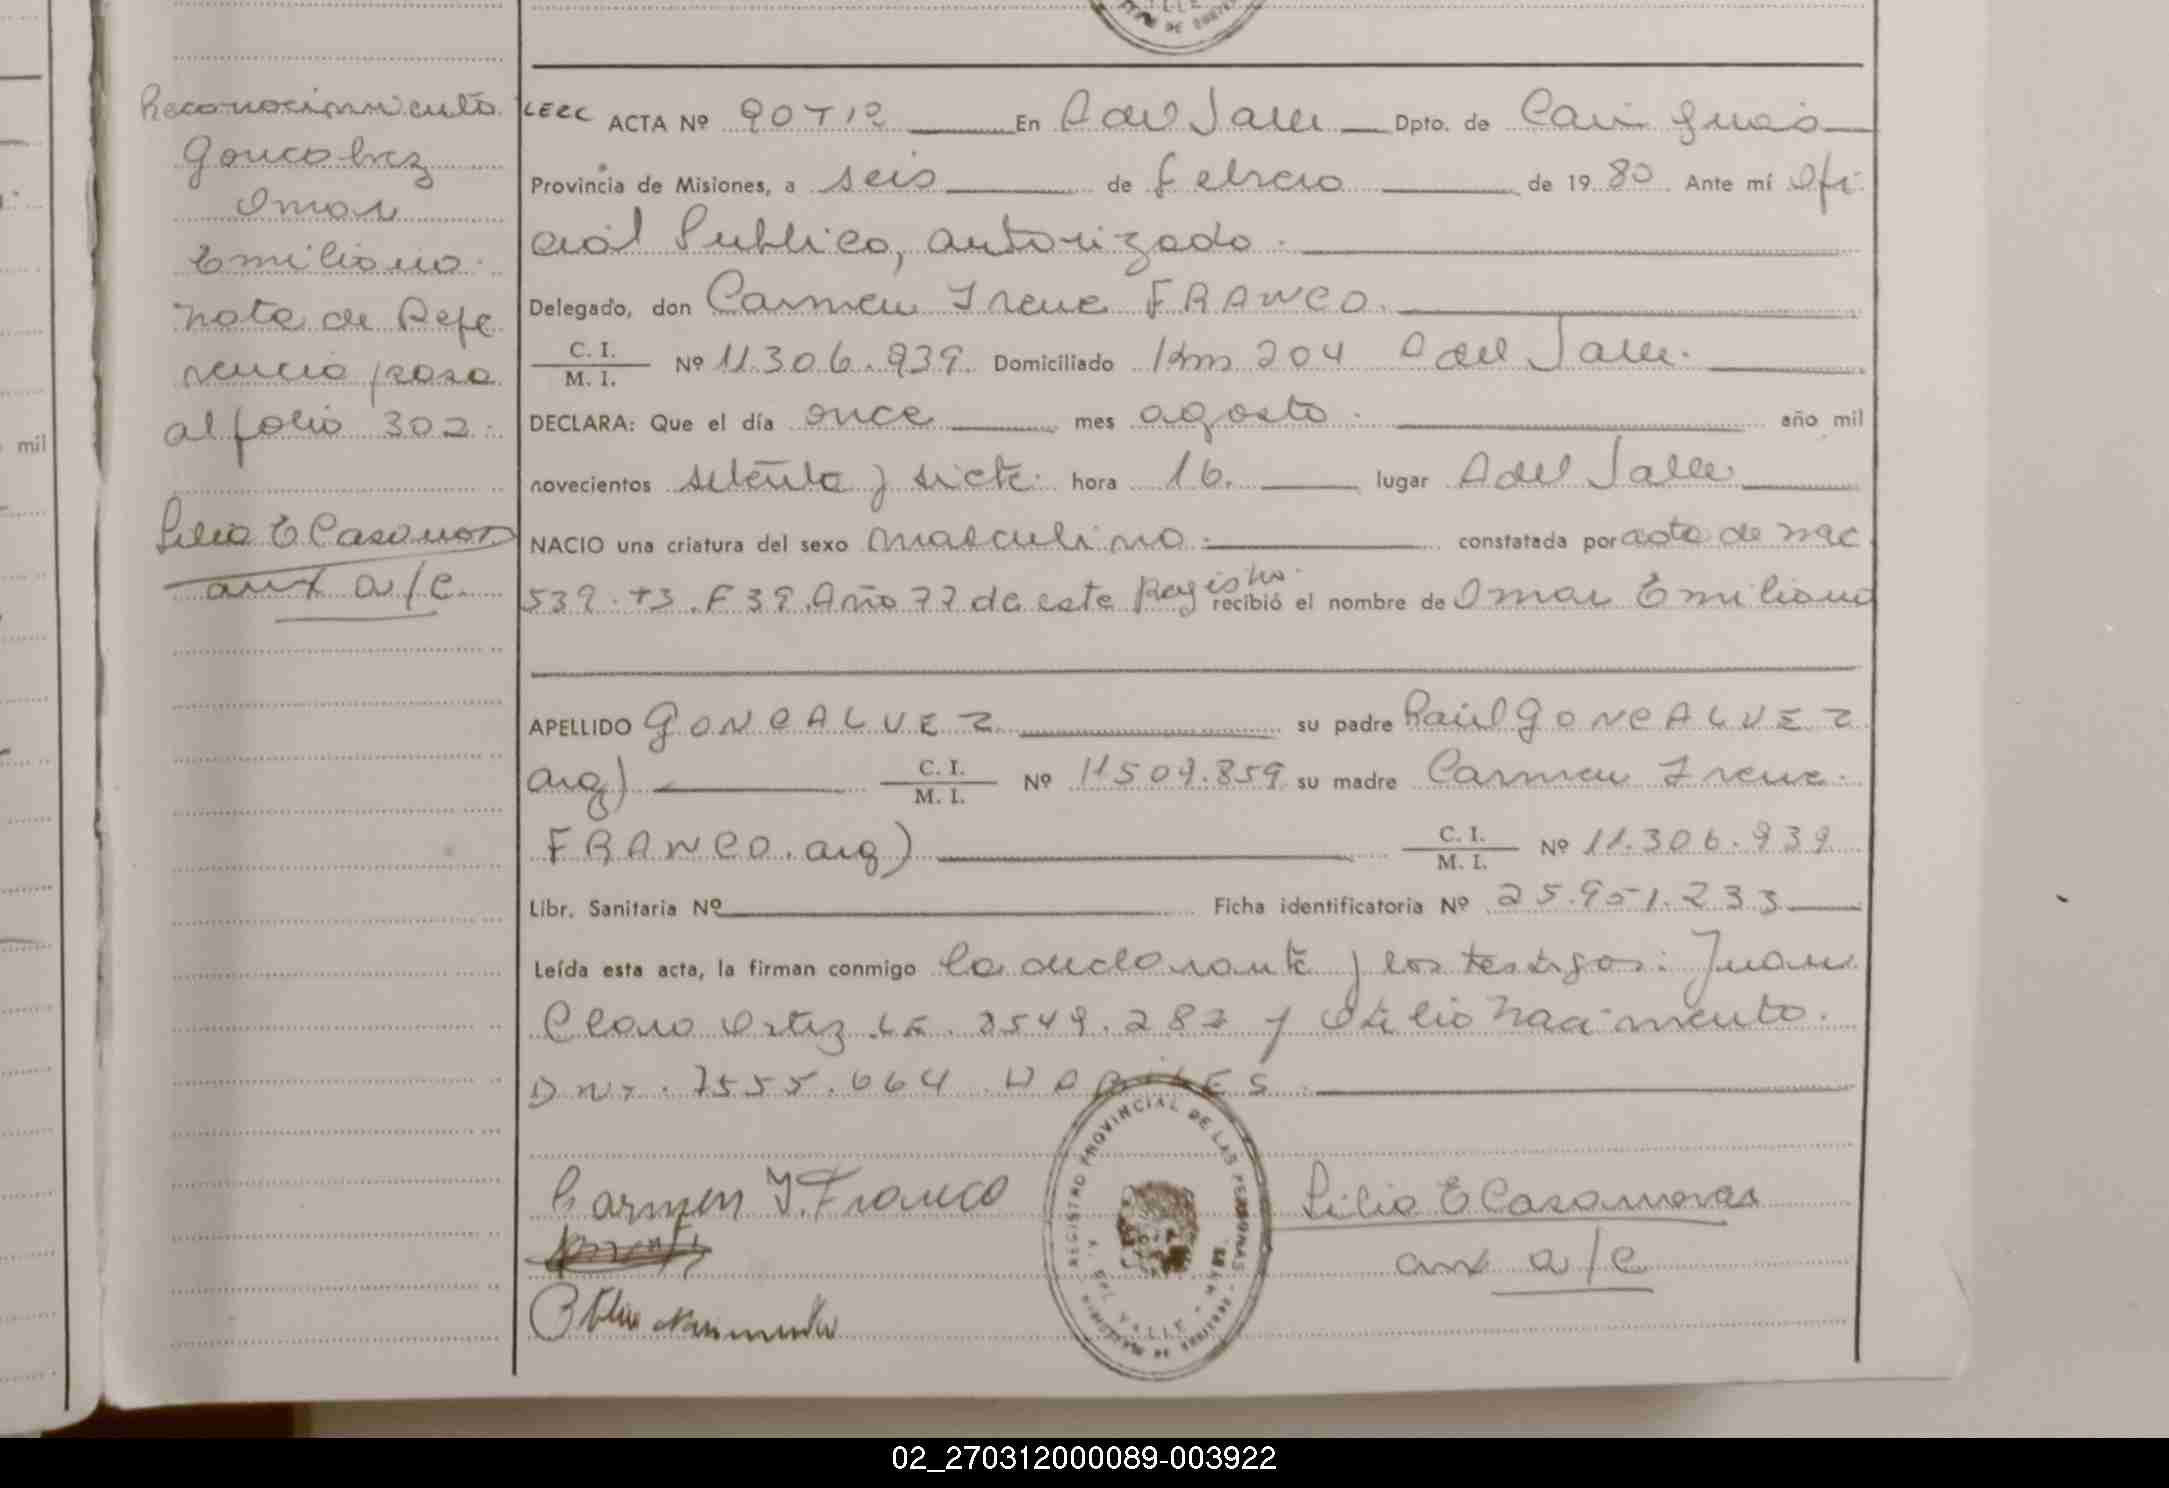 VALLE
DE
Reconocimiento
Goncalvez
Omar
Emiliano.
Nota de Refe
rencia pasa
al folio 302.
Lilia E Casanova
aux a/c.
mil
ACTA Nº 90 T 12 En A del Valle Dpto. de Cain guás
Provincia de Misiones, a seis de febrero de 19 80. Ante mí Ofi
cial Publico, autorizado.
Delegado, don Carmen Irene FRANCO.
C. I.
M. I. Nº 11.306.939. Domiciliado Km 204 A del Valle.
DECLARA: Que el día once mes agosto. año mil
novecientos setenta y siete. hora 16. lugar A del Valle
NACIO una criatura del sexo masculino. constatada por acta de nac
539. T3. F 39. Año 77 de este Registro. recibió el nombre de Omar Emiliano
APELLIDO GONCALVEZ su padre Raúl GONCALVEZ
arg) C. I.
M. I. Nº 11509.859 su madre Carmen Irene.
FRANCO. arg) C. I.
M. I. Nº 11.306.939
Libr. Sanitaria Nº Ficha identificatoria Nº 25.951.233
Leída esta acta, la firman conmigo la declarante y los testigos: Juan
Claro Ortiz LE. 2549.282 y Otilio Nacimento.
DNI. 7555.664 HABILES.
Carmen I. Franco
Lilia E Casanova
aux a/c
Otilio Nacimento
REGISTRO PROVINCIAL DE LAS PERSONAS
A. DEL VALLE
02_270312000089-003922